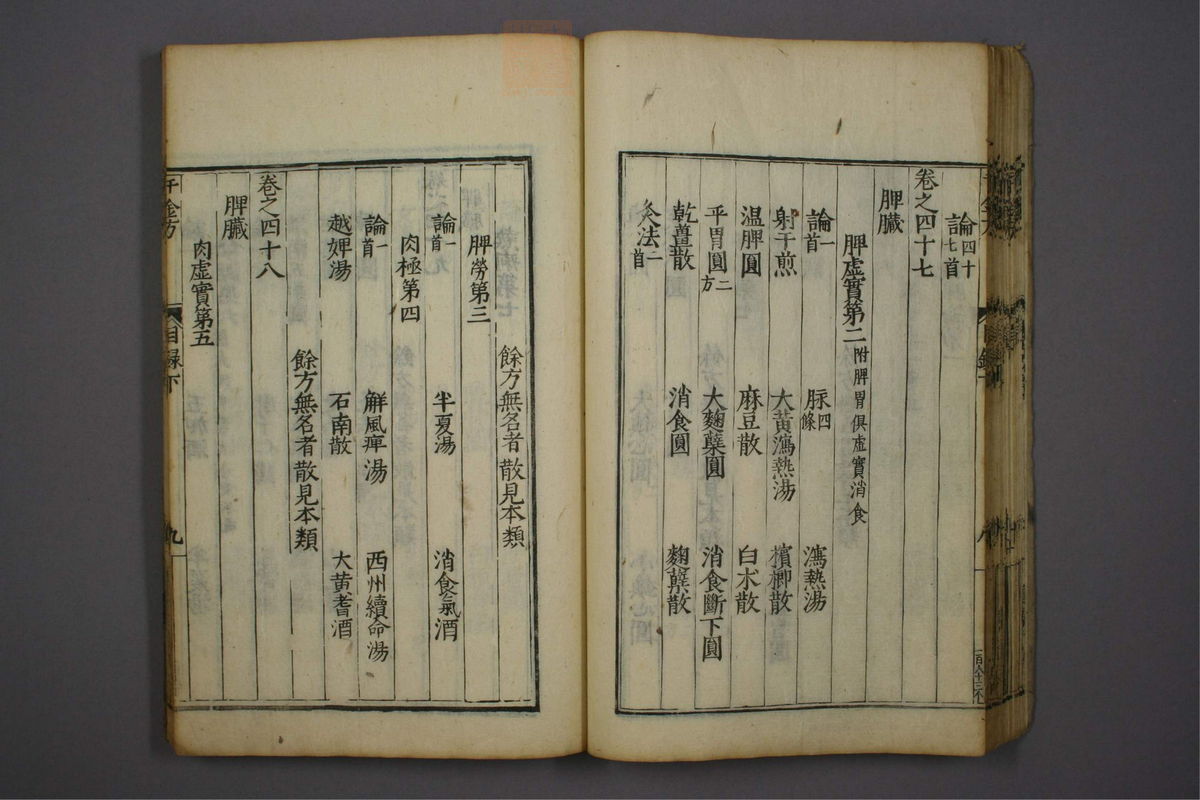 論四十七首
卷之四十七
脾臟
脾虛實第二附脾胃俱虛實消食
論一首 脈四條 瀉熱湯
射干煎 大黃瀉熱湯 檳榔散
温脾圓 麻豆散 白朮散
平胃圓二方 大麴蘗圓 消食斷下圓
乾薑散 消食圓 麴蘗散
灸法二首
餘方無名者散見本類
脾勞第三
論一首 半夏湯 消食氣酒
肉極第四
論一首 解風痺湯 西州續命湯
越婢湯 石南散 大黃耆酒
餘方無名者散見本類
卷之四十八
脾臟
肉虛實第五
千金方 目録下 九